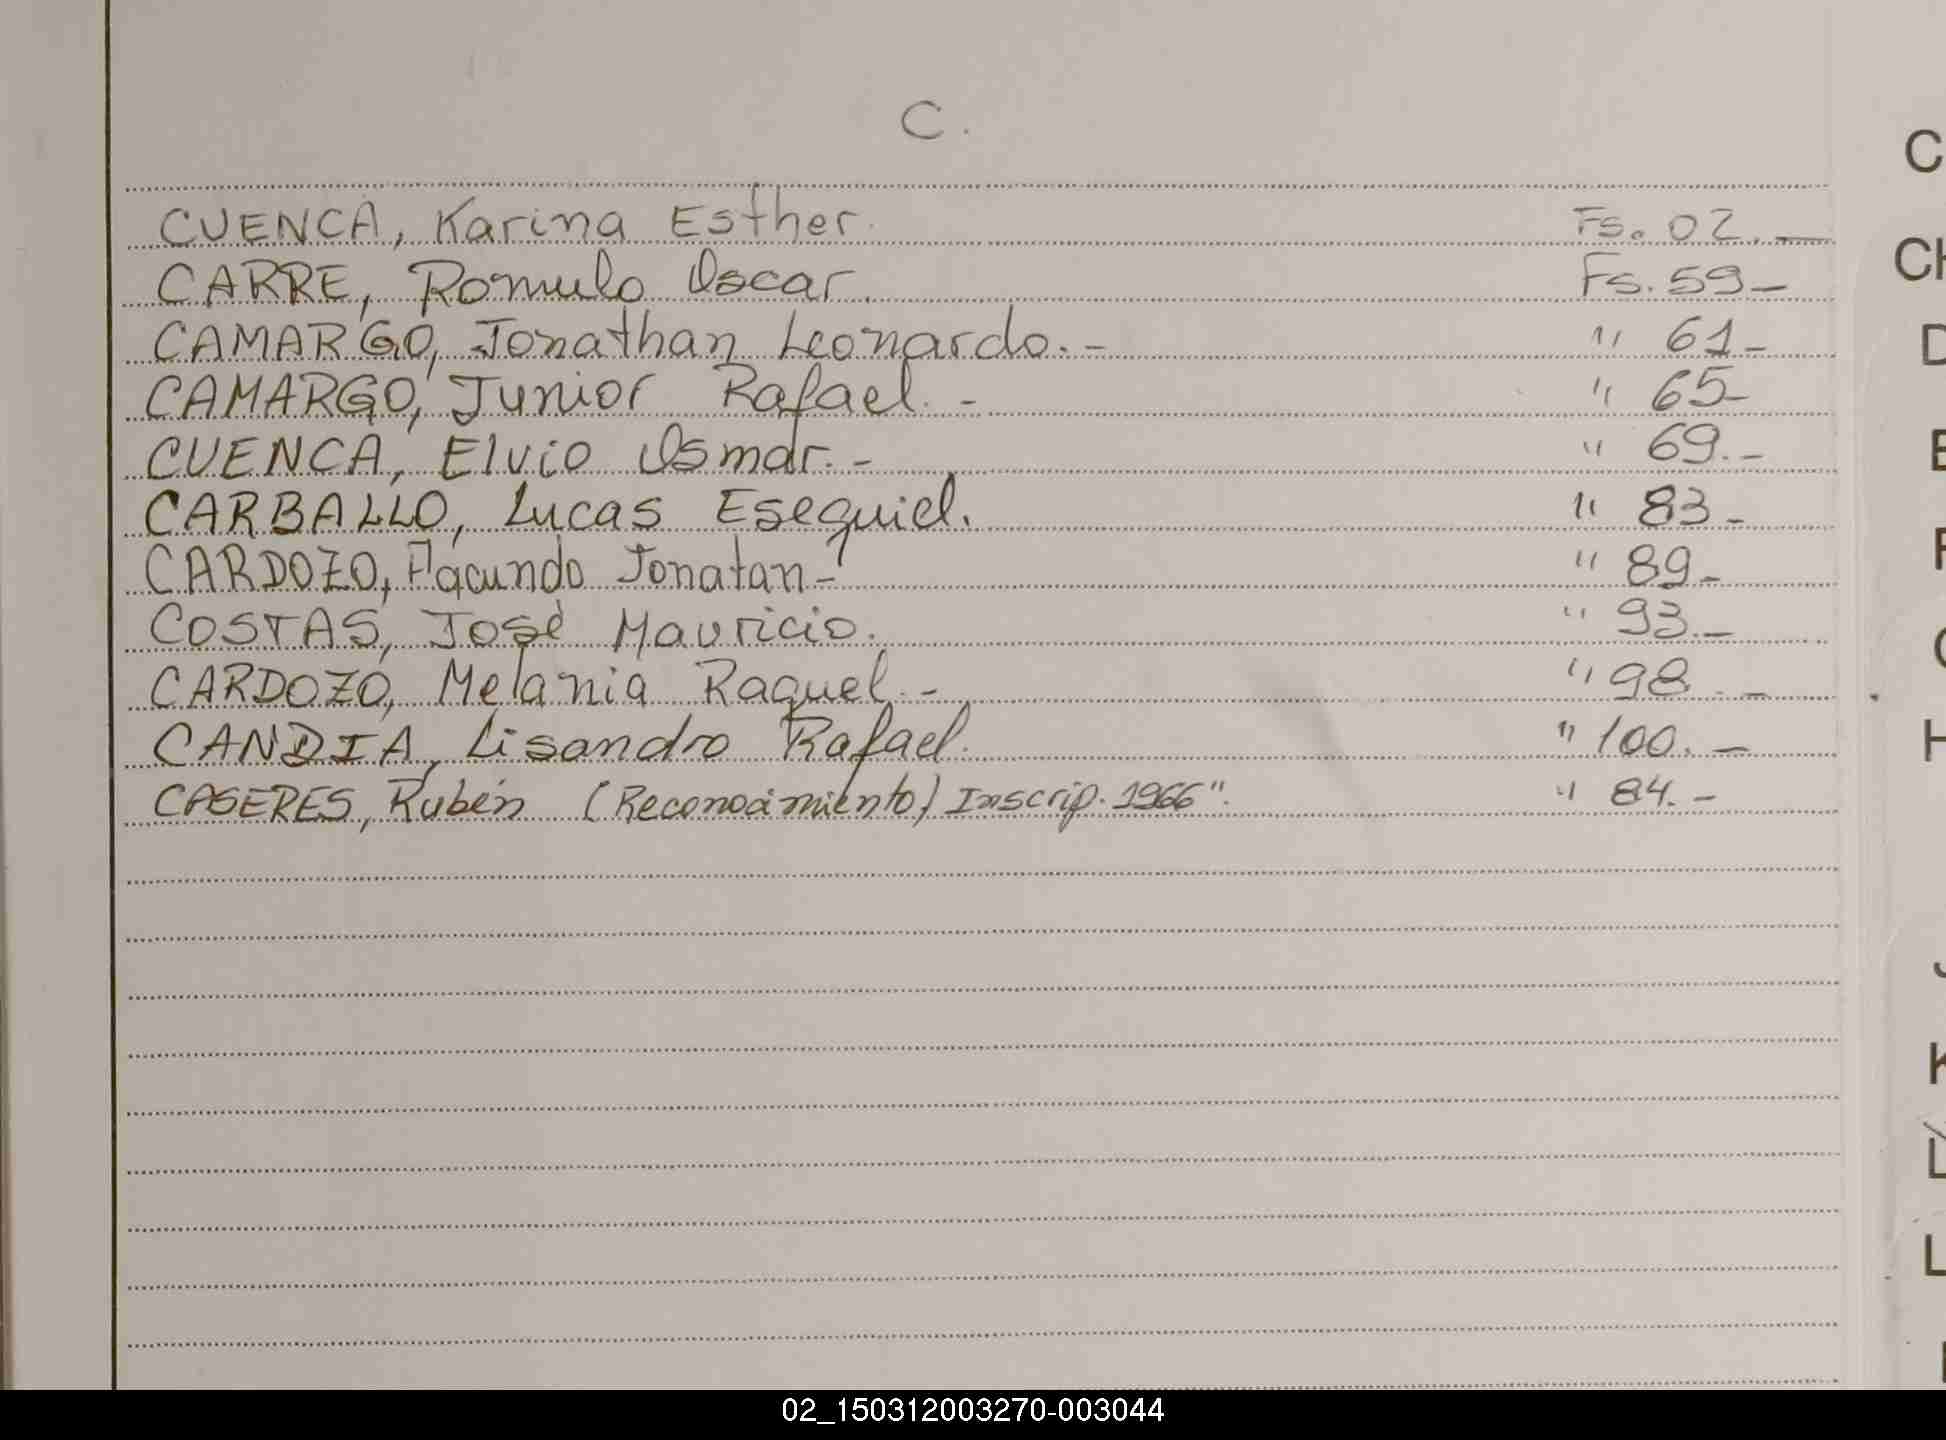 C.
CUENCA, Karina Esther. Fs. 02.-
CARRE, Romulo Oscar. Fs. 59-
CAMARGO, Jonathan Leonardo.- " 61-
CAMARGO, Junior Rafael.- " 65-
CUENCA, Elvio Osmar.- " 69.-
CARBALLO, Lucas Esequiel. " 83-
CARDOZO, Facundo Jonatan- " 89-
COSTAS, José Mauricio. " 93.-
CARDOZO, Melania Raquel.- " 98.-
CANDIA, Lisandro Rafael. " 100.-
CASERES, Rubén (Reconocimiento) Inscrip. 1966". " 84.-
C
CH
D
E
F
H
K
L
02_150312003270-003044